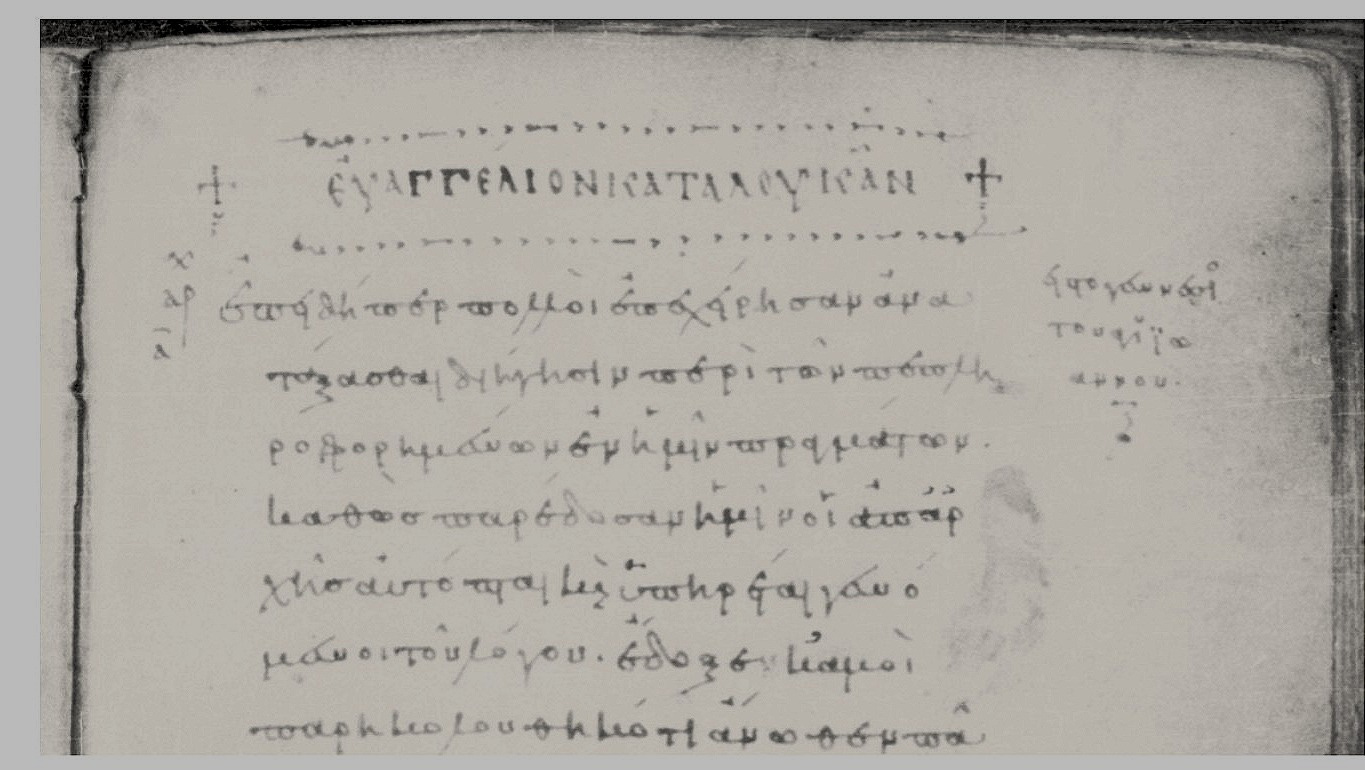 ἐυαγγελιον κατα λουκᾶν
ἐπειδή περ πολλοὶ ἐπεχείρησαν ἀνα
τάξασθαι διήγησιν περὶ τῶν πεπλη
ροφορημένων ἐν ἡμῖν πραγμάτων.
καθὼσ παρέδοσαν ἡμῖν οἱ ἀπ ἀρ
χῆσ ἀυτόπται καὶ ὑπηρέται γενό
μενοι τοῦ λόγου. ἔδοξε κἀμοὶ
παρηκολουθηκότι ἄνωθεν πᾶ